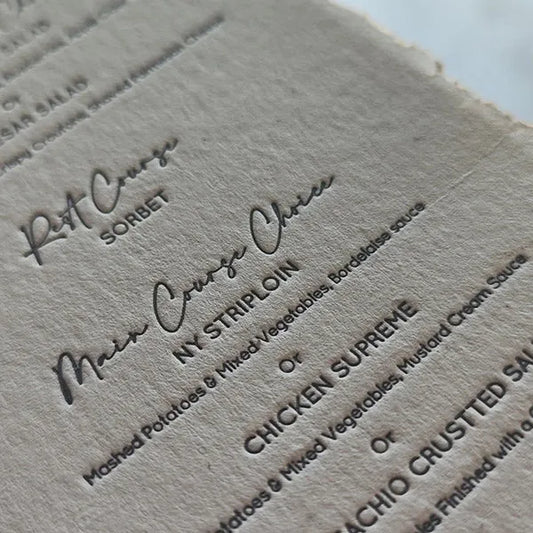 SAR SALAD
Rest Course
SORBET
Main Course Choice
NY STRIPLOIN
Mashed Potatoes & Mixed Vegetables, Bordelaiss sauce
Or
CHICKEN SUPREME
& Mixed Vegetables, Mustard Cream Sauce
Or
ACHIO CRUSTTED SAL
Finished with a